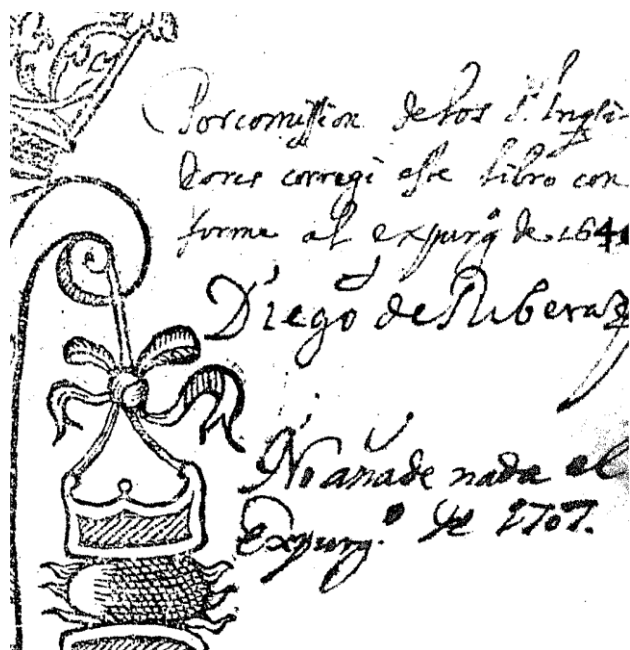 Por comission de los S.^s Inqˢi
dores corregi este libro con
forme al expurg.º de 164
Diego de Ribera
No añade nada el
Expurg.º de 1707.